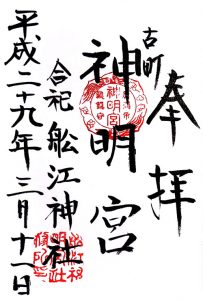 奉拝
古町
神明宮
合祀 舩江神社
平成二十九年三月十一日